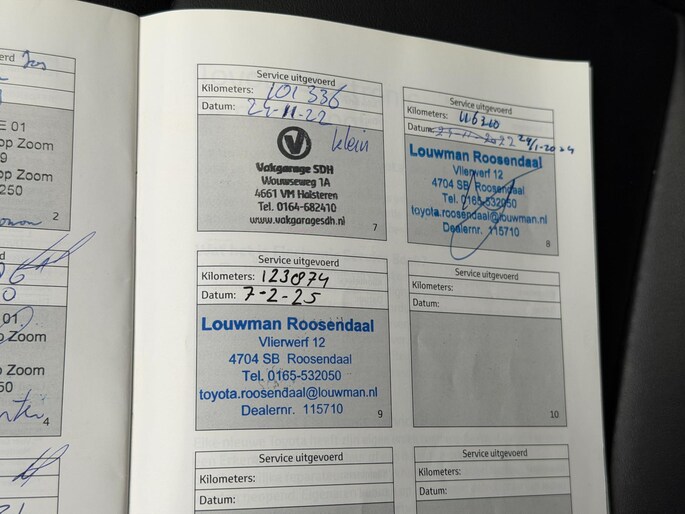 E 01
op Zoom
9
op Zoom
250
2
01
Zoom
op Zoom
50
4
Service uitgevoerd
Kilometers: 101 336
Datum: 24-11-22
klein
Vakgarage SDH
Wouwseweg 1A
4661 VM Halsteren
Tel. 0164-682410
www.vakgaragesdh.nl
7
Service uitgevoerd
Kilometers: 116360
Datum: 24-11-2022 24/1-2024
Louwman Roosendaal
Vlierwerf 12
4704 SB Roosendaal
Tel. 0165-532050
toyota.roosendaal@louwman.nl
Dealernr. 115710
8
Service uitgevoerd
Kilometers: 1230874
Datum: 7-2-25
Louwman Roosendaal
Vlierwerf 12
4704 SB Roosendaal
Tel. 0165-532050
toyota.roosendaal@louwman.nl
Dealernr. 115710
9
Service uitgevoerd
Kilometers:
Datum:
10
Service uitgevoerd
Kilometers:
Datum:
Service uitgevoerd
Kilometers:
Datum: